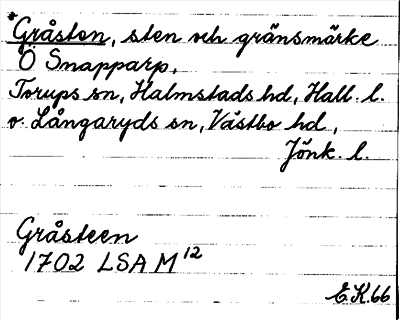 *Gråsten, sten och gränsmärke
Ö Snapparp,
Torups sn, Halmstads hd, Hall. l.
o. Långaryds sn, Västbo hd,
Jönk. l.
Gråsteen
1702 LSA M 12
E.K. 66